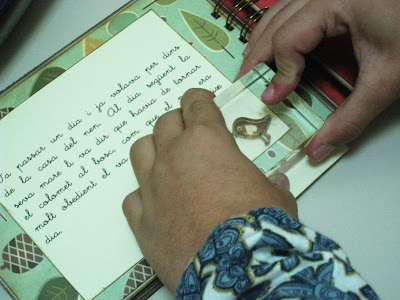 Va passar un dia i ja volava per dins
de la casa del nen. Al dia següent la
seva mare li va dir que havia de tornar
el colomet al bosc, com que el era
molt obedient el va
dia.